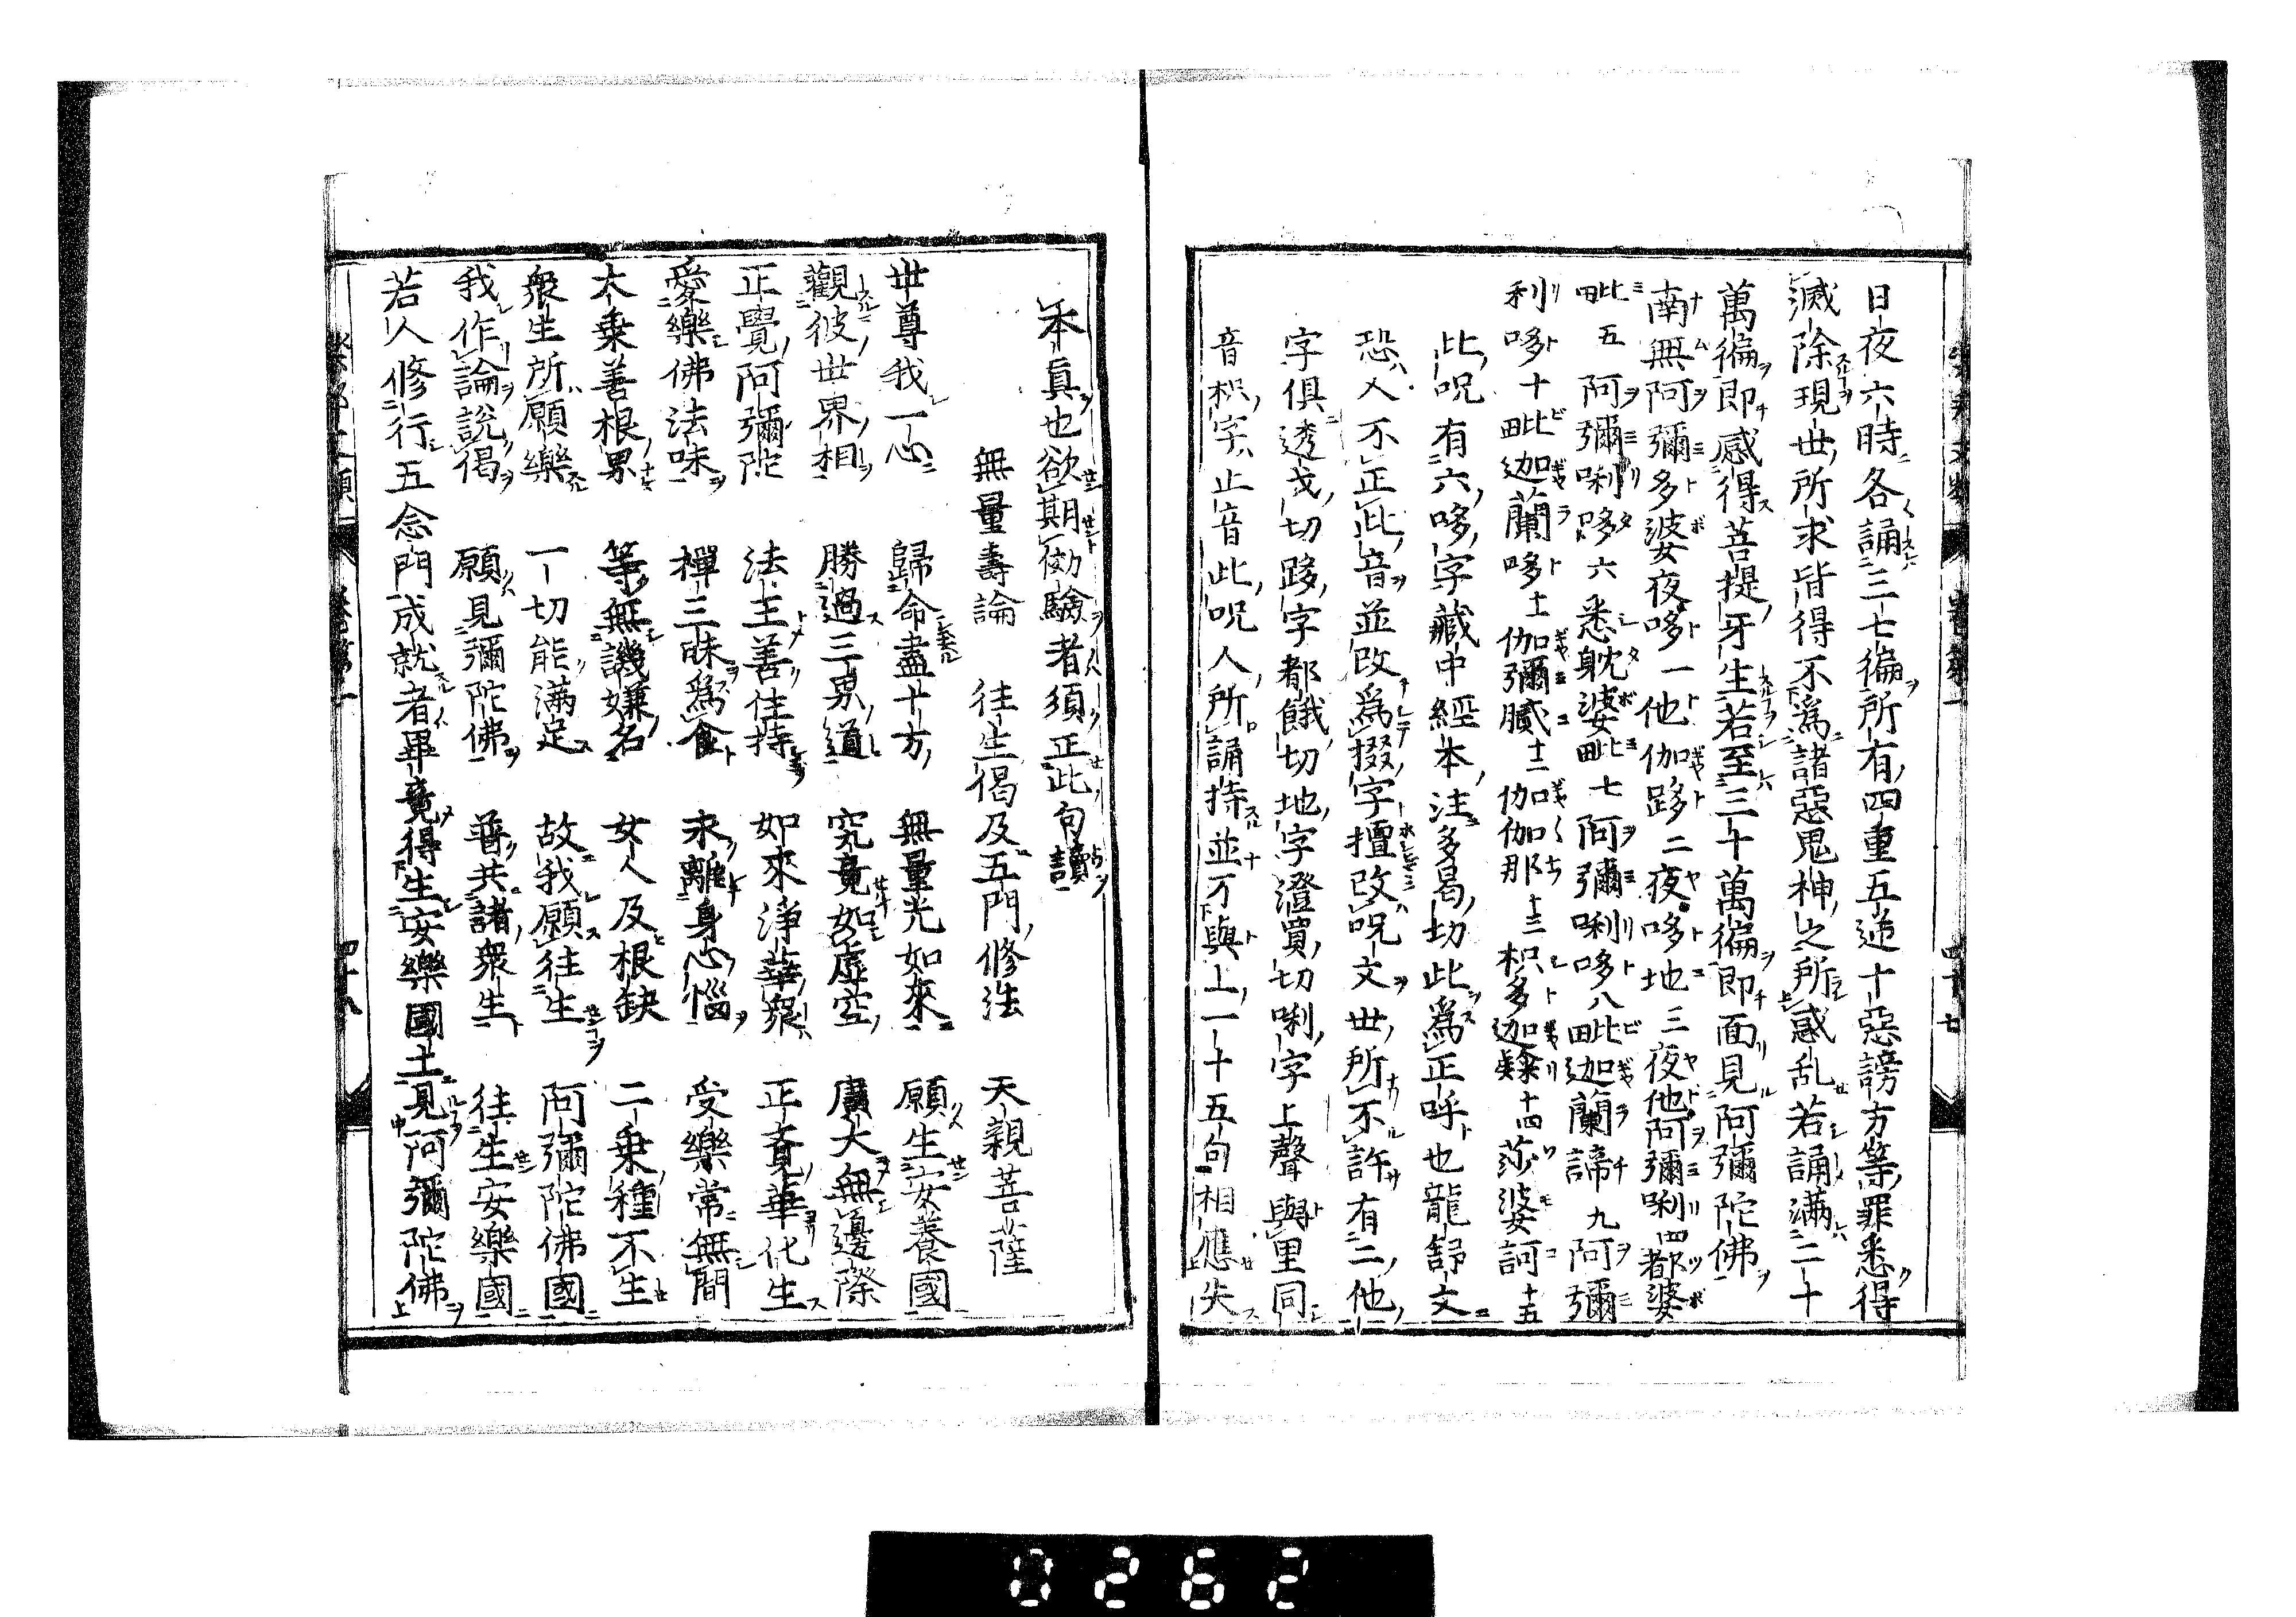 日夜六時各誦三七徧所有四重五逆十惡謗方等罪悉得
滅除現世所求皆得不為諸惡鬼神之所惑乱若誦滿二十
萬徧即感得菩提牙生若至三十萬徧即面見阿彌陀佛
南無阿彌多婆夜哆一他伽跢二夜哆地三夜他阿彌唎四都婆
毗五阿彌唎哆六悉躭婆毗七阿彌唎哆八毗迦蘭諦九阿彌
利哆十毗迦蘭哆十一伽彌膩十二伽伽那十三枳多迦𨽻十四莎婆訶十五
此呪有六哆字藏中經本注多曷切此為正呼也龍舒文
恐人不正此音並改為掇字擅改呪文世所不許有二他
字俱透戈切跢字都餓切地字澄買切唎字上聲與里同
音枳字止音此呪人所誦持並不與上一十五句相應失
本真也欲期効驗者須正此句讀
無量壽論　往生偈及五門修法　天親菩薩
世尊我一心　歸命盡十方　無量光如來　願生安養國
觀彼世界相　勝過三界道　究竟如虛空　廣大無邊際
正覺阿彌陀　法王善住持　如來淨華衆　正覺華化生
愛樂佛法味　禪三昧為食　永離身心惱　受樂常無間
大乗善根界　等無譏嫌名　女人及根缺　二乗種不生
衆生所願樂　一切能滿足　故我願往生　阿彌陀佛國
我作論說偈　願見彌陀佛　普共諸衆生　往生安樂國
若人修行五念門成就者畢竟得生安樂國土見阿彌陀佛
0262